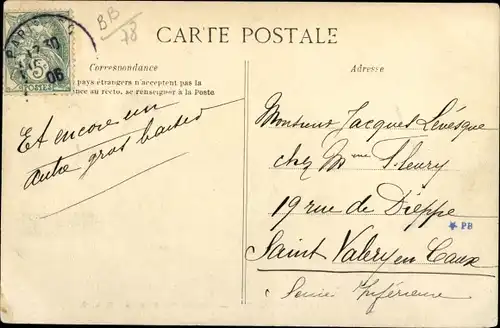 BB
78
PARIS
06
5c
POSTES
CARTE POSTALE
Correspondance
pays étrangers n'acceptent pas la
nce au recto, se renseigner à la Poste
Et encore un
autre gros baiser
Adresse
Monsieur Jacques Levesque
chez Mme Fleury
19 rue de Dieppe
PB
Saint Valery en Caux
Seine Inférieure